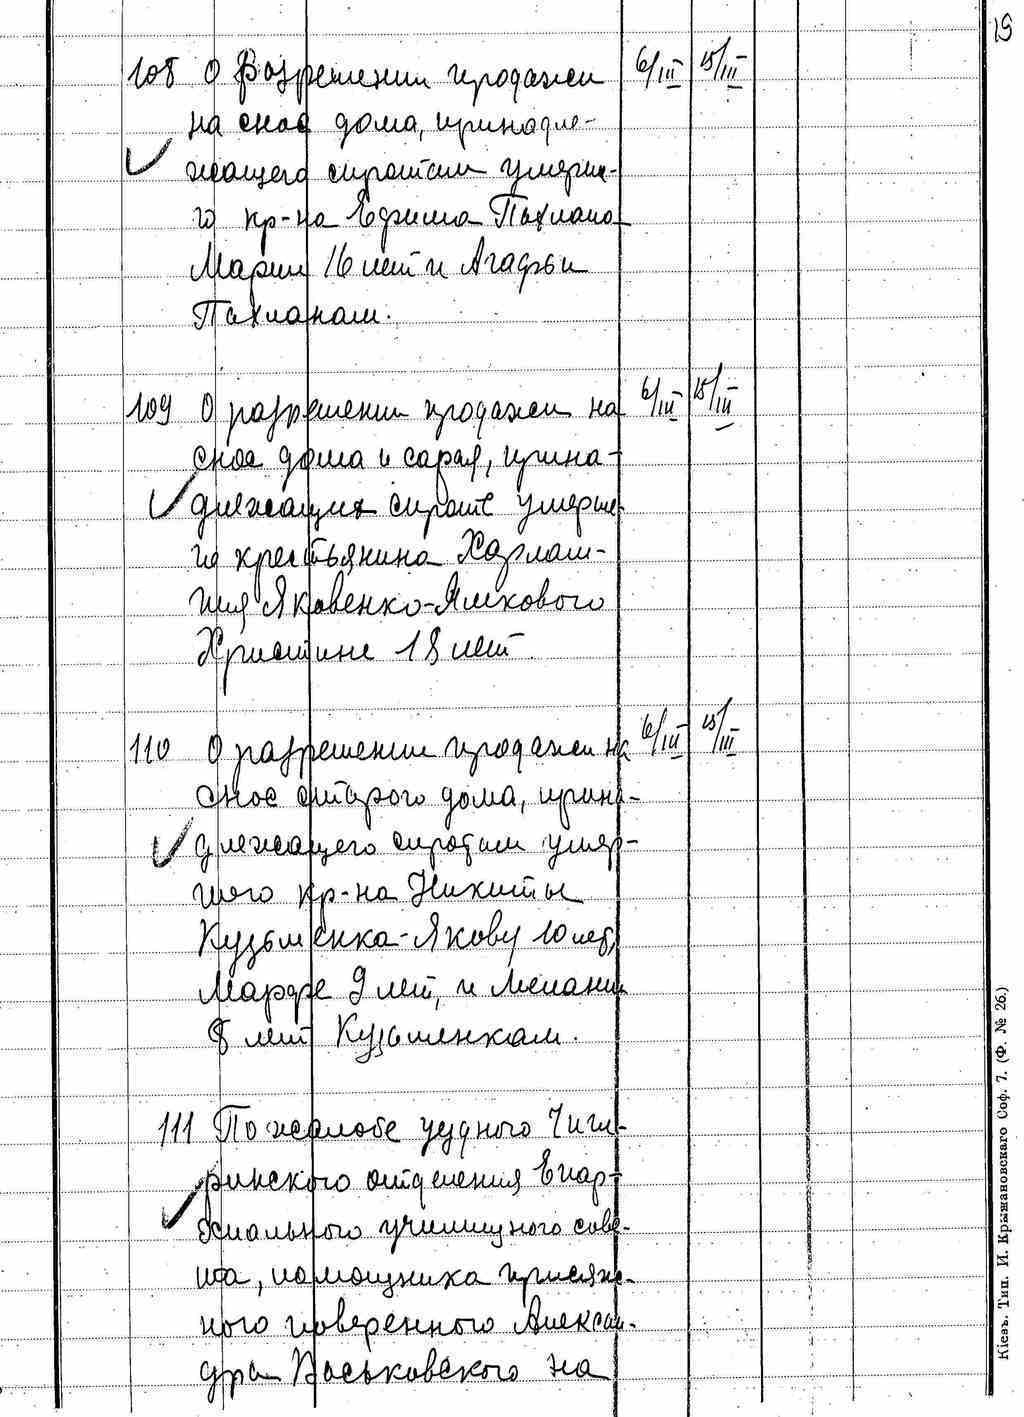 19
108 О Разрешении продажи 6/III 15/III
на снос дома, принадле-
жащего сиротам умерше-
го кр-на Ефима Пахмана
Марии 16 лет и Агафьи
Пахманам.
109 О разрешении продажи на 6/III 15/III
снос дома и сарая, прина-
длежащих сироте умерше-
го крестьянина Харлам-
пия Яковенко-Ямкового
Христине 18 лет.
110 О разрешении продажи на 6/III 15/III
снос старого дома, прина-
длежащего сиротам умер-
шого кр-на Никиты
Кузьменка-Якову 10 лет,
Марфе 9 лет, и Мелании
8 лет Кузьменкам.
111 По жалобе уездного Чиги-
ринского отделения Епар-
хиального училищного сове-
та, помощника присяж-
ного поверенного Алексан-
дра Васьковского на
Кіевъ. Тип. И. Крыжановскаго Соф. 7. (Ф. № 26.)